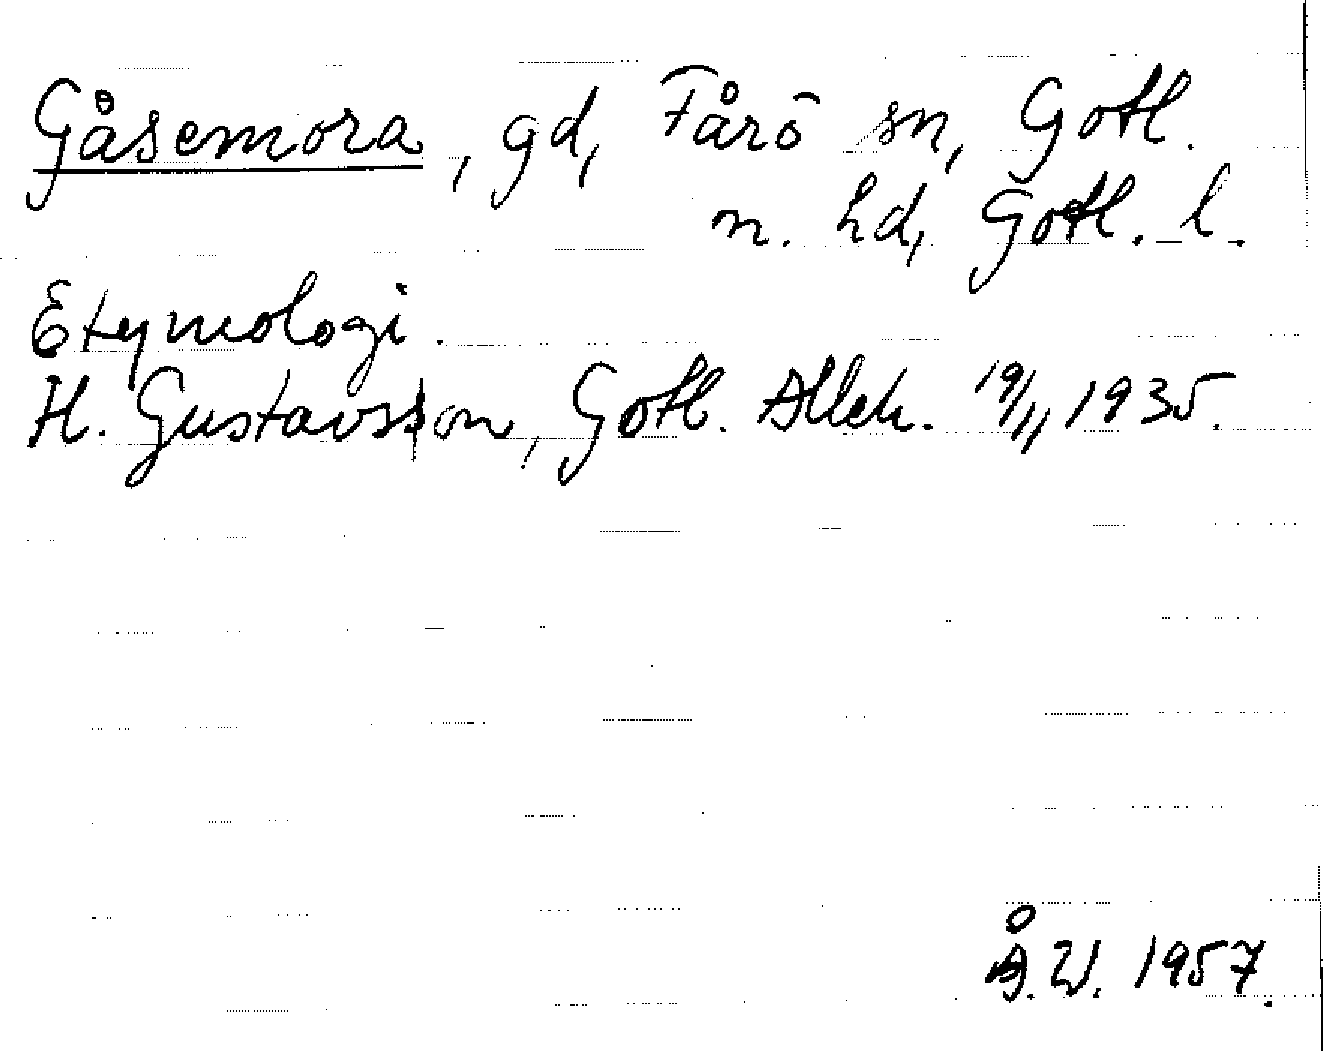 Gåsemora, gd, Fårö sn, Gotl.
n. hd, Gotl. l.
Etymologi.
H. Gustavson, Gotl. Alleh. 19/11 1935.
Å.W. 1957.